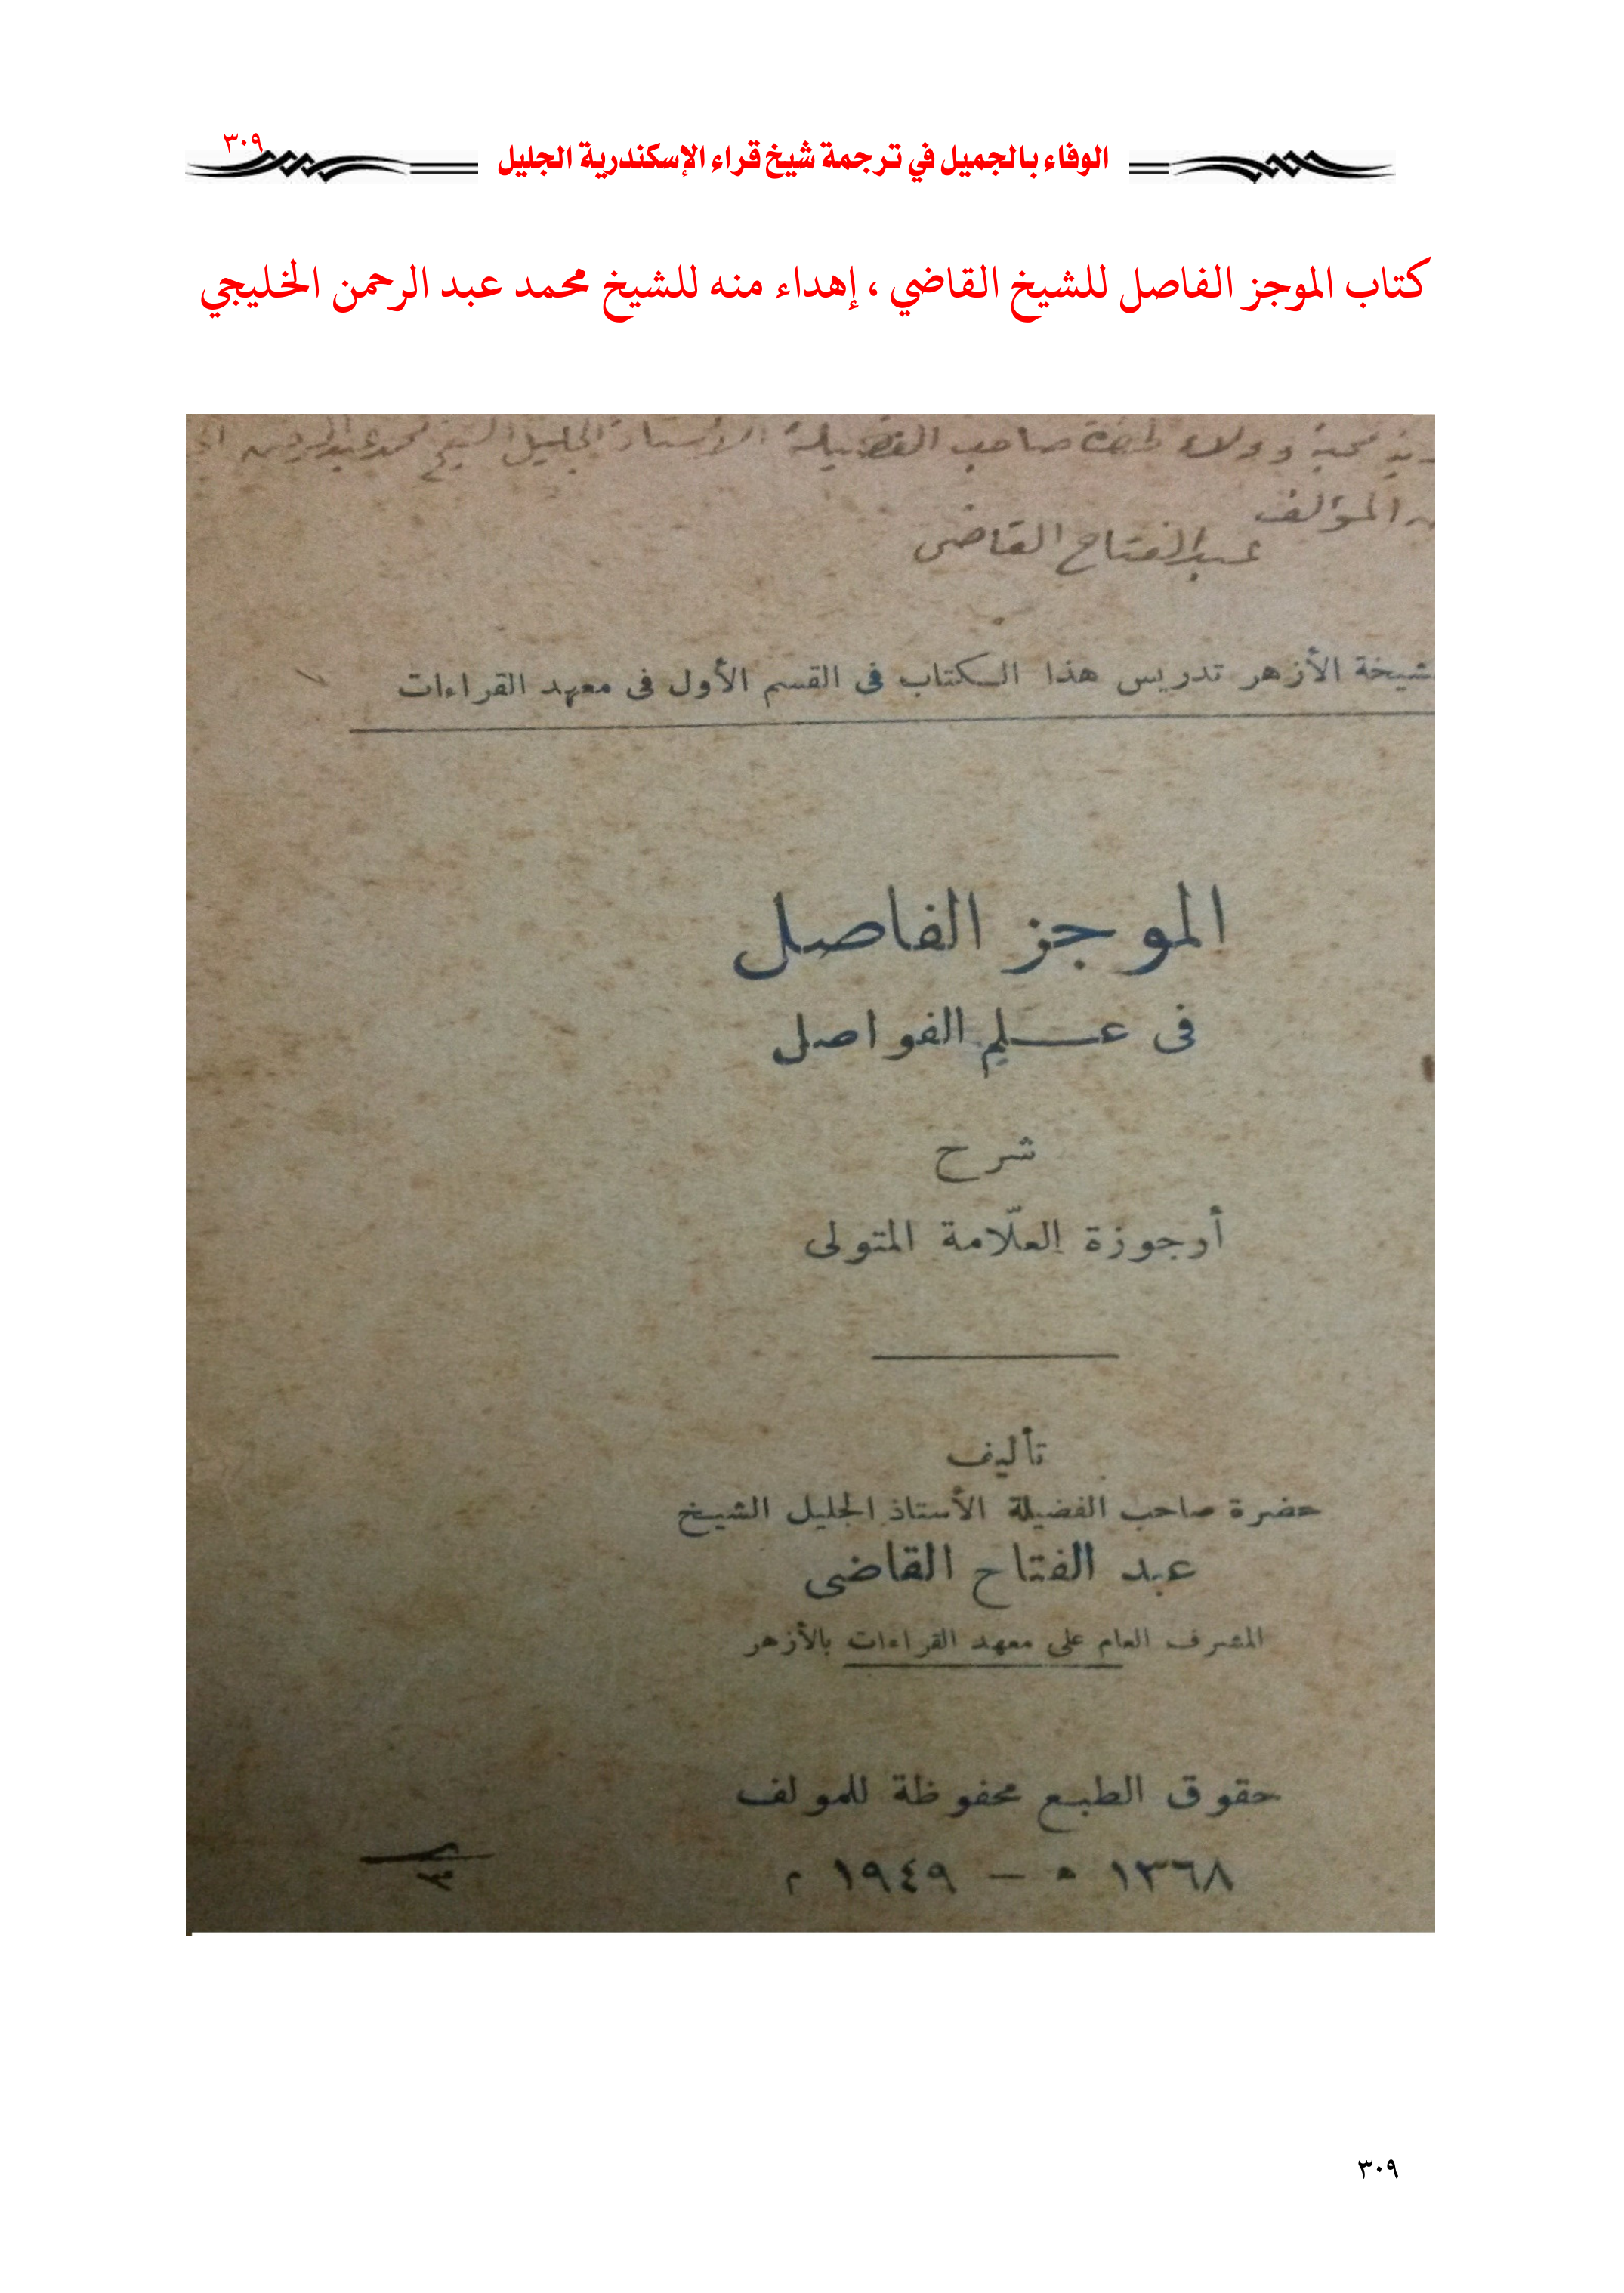 الوفاء بالجميل في ترجمة شيخ قراء الإسكندرية الجليل
٣٠٩
كتاب الموجز الفاصل للشيخ القاضي ، إهداء منه للشيخ محمد عبد الرحمن الخليجي
محبة وولاء لحضرة صاحب الفضيلة الأستاذ الجليل الشيخ محمد عبد الرحمن
المؤلف
عبد الفتاح القاضى
شيخة الأزهر تدريس هذا الكتاب فى القسم الأول فى معهد القراءات
الموجز الفاصل
فى عـلم الفواصل
شرح
أرجوزة العلّامة المتولى
تأليف
حضرة صاحب الفضيلة الأستاذ الجليل الشيخ
عبد الفتاح القاضى
المشرف العام على معهد القراءات بالأزهر
حقوق الطبع محفوظة للمولف
١٣٦٨ ه – ١٩٤٩ م
٣٠٩